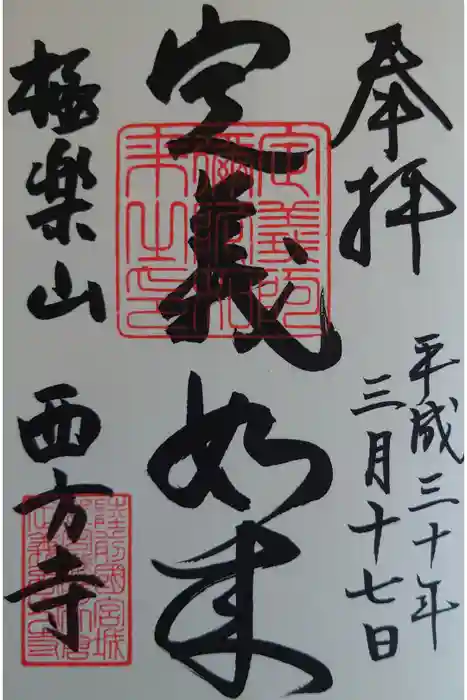 奉拝
平成三十年
三月十七日
定義如来
極楽山
西方寺